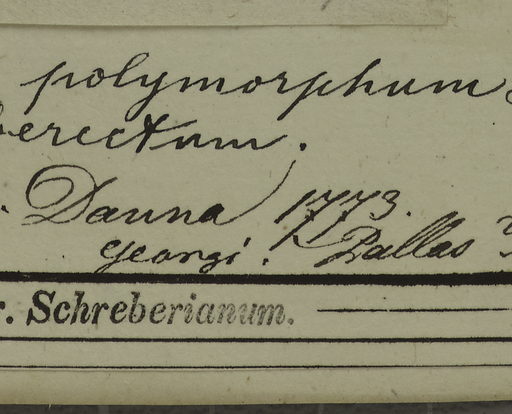 polymorphum
erectum.
Dauna 1773.
Georgi. Pallas
r. Schreberianum.